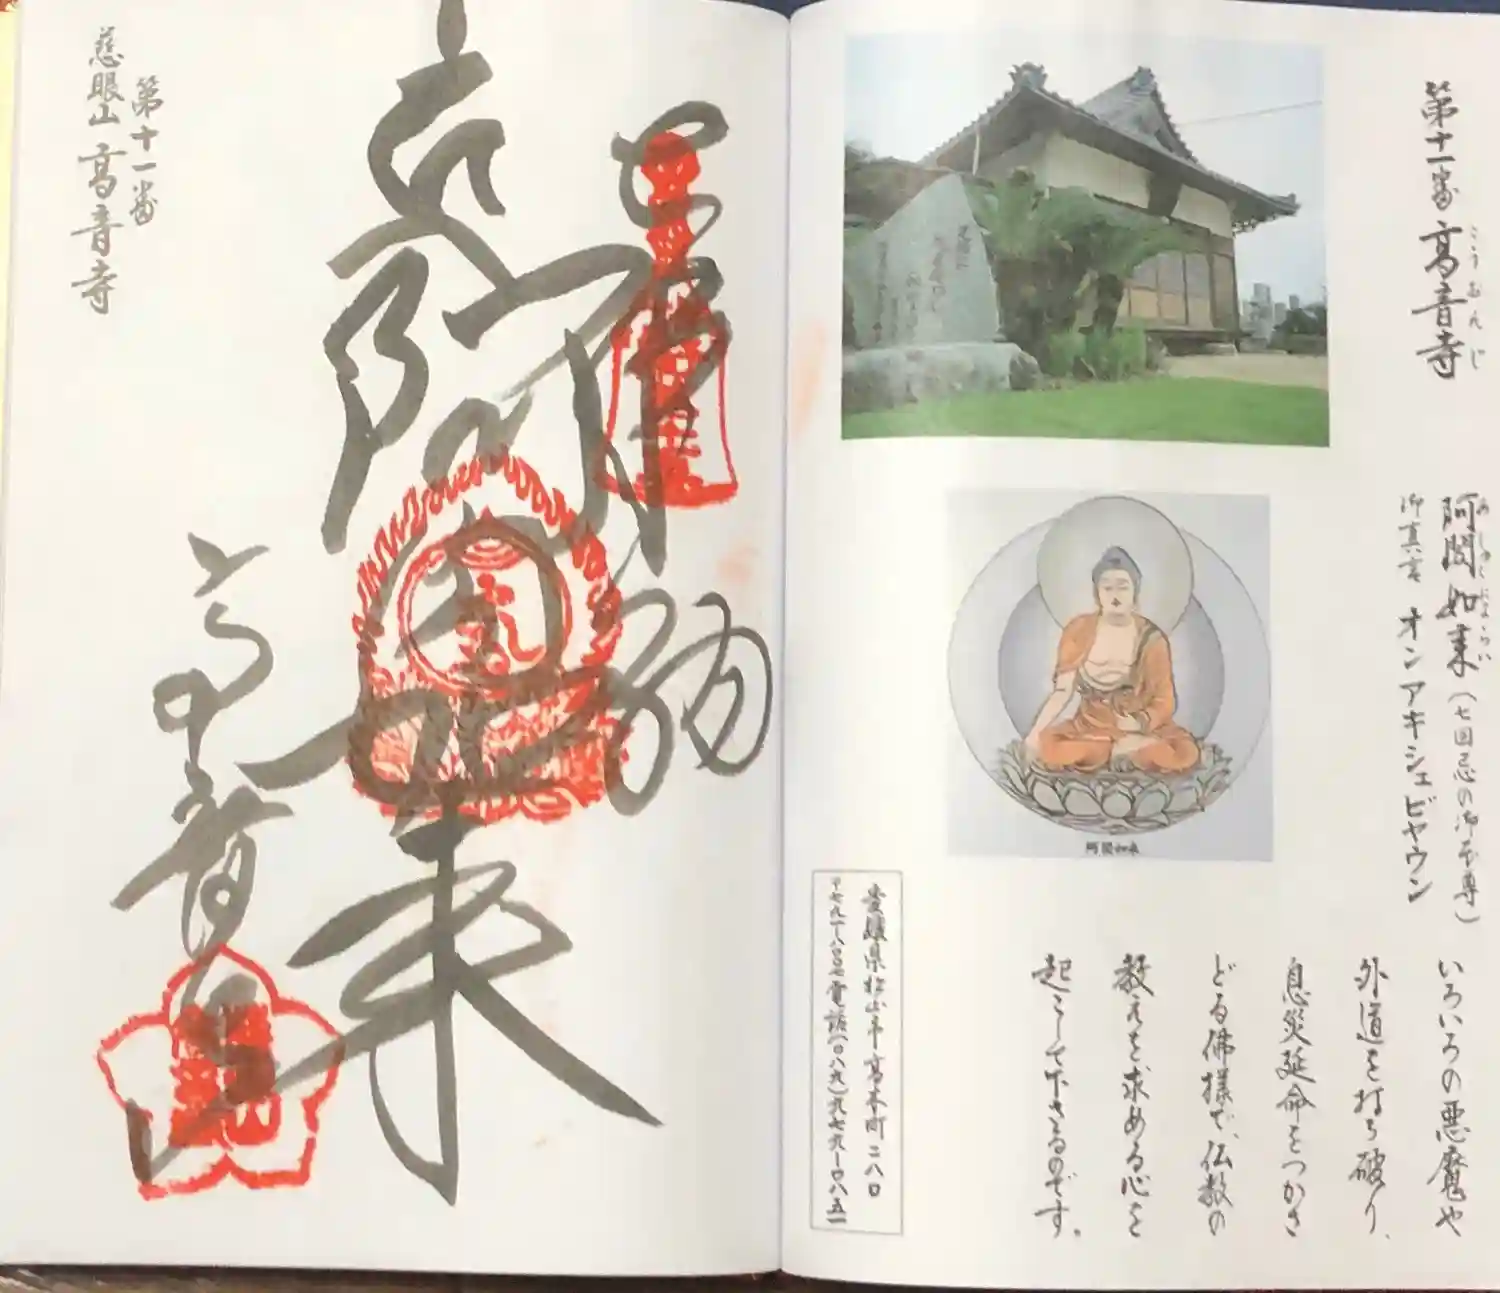 第十一番 高音寺
こうおんじ
阿閦如来（七回忌の御本尊）
あしゅくにょらい
御真言 オン アキシュビヤウン
いろいろの悪魔や
外道を打ち破り、
息災延命をつかさ
どる佛様で、仏教の
教えを求める心を
起こして下さるのです。
阿閦如来
愛媛県松山市高木町二八〇
〒七九一ー八〇〇七電話（〇八九）九七九ー〇八五一
第十一番
慈眼山 高音寺
奉納
阿
如来
高音寺